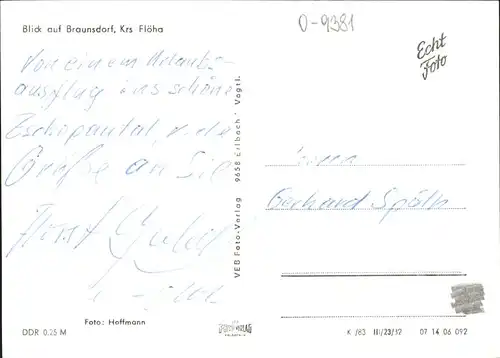 Blick auf Braunsdorf, Krs Flöha
O-9381
Echt
Foto
Von einem Urlaubs-
ausflug ins schöne
Zschopautal, v. die
Grüße an Sie
Horst
Herrn
Gerhard Späth
VEB Foto-Verlag 9658 Erlbach Vogtl.
Foto: Hoffmann
DDR 0,25 M
K /83 III/23/12 07 14 06 092